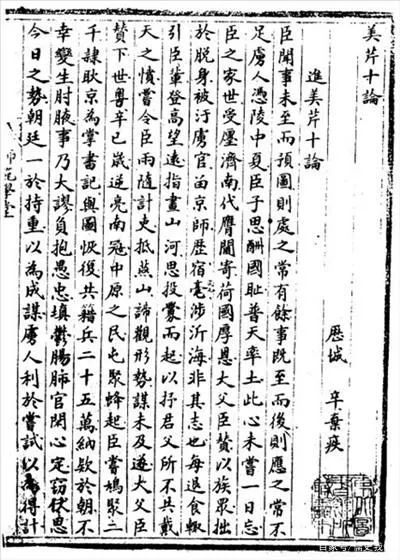 美芹十論
歷城 辛棄疾
進美芹十論
臣聞事未至而預圖則處之常有餘事既至而後則應之常不
足虜人憑陵中夏臣子思酬國恥普天率土此心未嘗一日忘
臣之家世受廛濟南代膺閫寄荷國厚恩大父臣贊以族眾拙
於脫身被汙虜官留京師歷宿亳涉沂海非其志也每退食輒
引臣輩登高望遠指畫山河思投釁而起以紓君父所不共戴
天之憤嘗令臣兩隨計吏抵燕山諦觀形勢謀未及遂大父臣
贊下世粵辛巳歲逆亮南寇中原之民屯聚蜂起臣嘗鳩聚二
千隸耿京為掌書記與圖恢復共籍兵二十五萬納欵於朝不
幸變生肘腋事乃大謬負抱愚忠填鬱腸肺官閑心定竊伏思
今日之勢朝廷一於持重以為成謀虜人利於嘗試以為得計